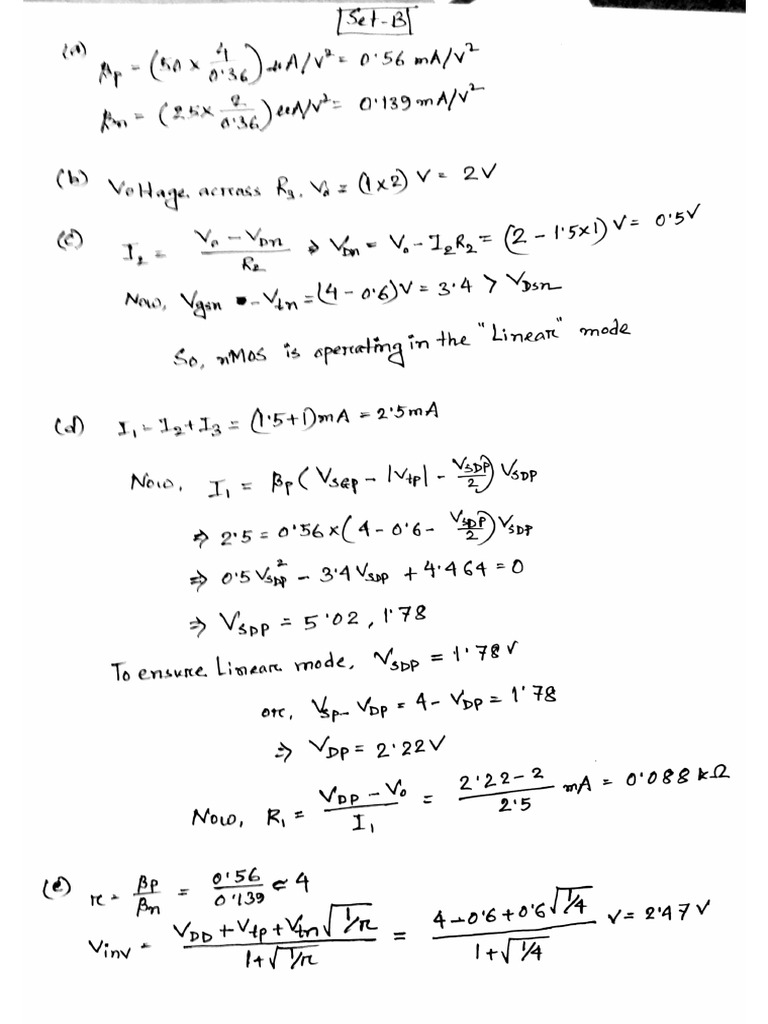 Set-B
(a) βp = (50 × 4/0.36) uA/V² = 0.56 mA/V²
βn = (25 × 2/0.36) uA/V² = 0.139 mA/V²
(b) Voltage across R3, Vo = (1×2) V = 2V
(c) I2 = (Vo - VDn)/R2 ⇒ VDn = Vo - I2R2 = (2 - 1.5×1) V = 0.5V
Now, Vgsn - Vtn = (4 - 0.6) V = 3.4 > VDsn
So, nMOS is operating in the "Linear" mode
(d) I1 = I2 + I3 = (1.5+1) mA = 2.5 mA
Now, I1 = βp (VSGp - |Vtp| - VSDP/2) VSDP
⇒ 2.5 = 0.56 × (4 - 0.6 - VSDP/2) VSDP
⇒ 0.5 VSDP² - 3.4 VSDP + 4.464 = 0
⇒ VSDP = 5.02, 1.78
To ensure Linear mode, VSDP = 1.78 V
or, VSP - VDP = 4 - VDP = 1.78
⇒ VDP = 2.22 V
Now, R1 = (VDP - Vo)/I1 = (2.22 - 2)/2.5 mA = 0.088 kΩ
(e) r = βp/βn = 0.56/0.139 ≈ 4
Vinv = (VDD + Vtp + Vtn √1/r)/(1 + √1/r) = (4 - 0.6 + 0.6 √1/4)/(1 + √1/4) V = 2.47 V